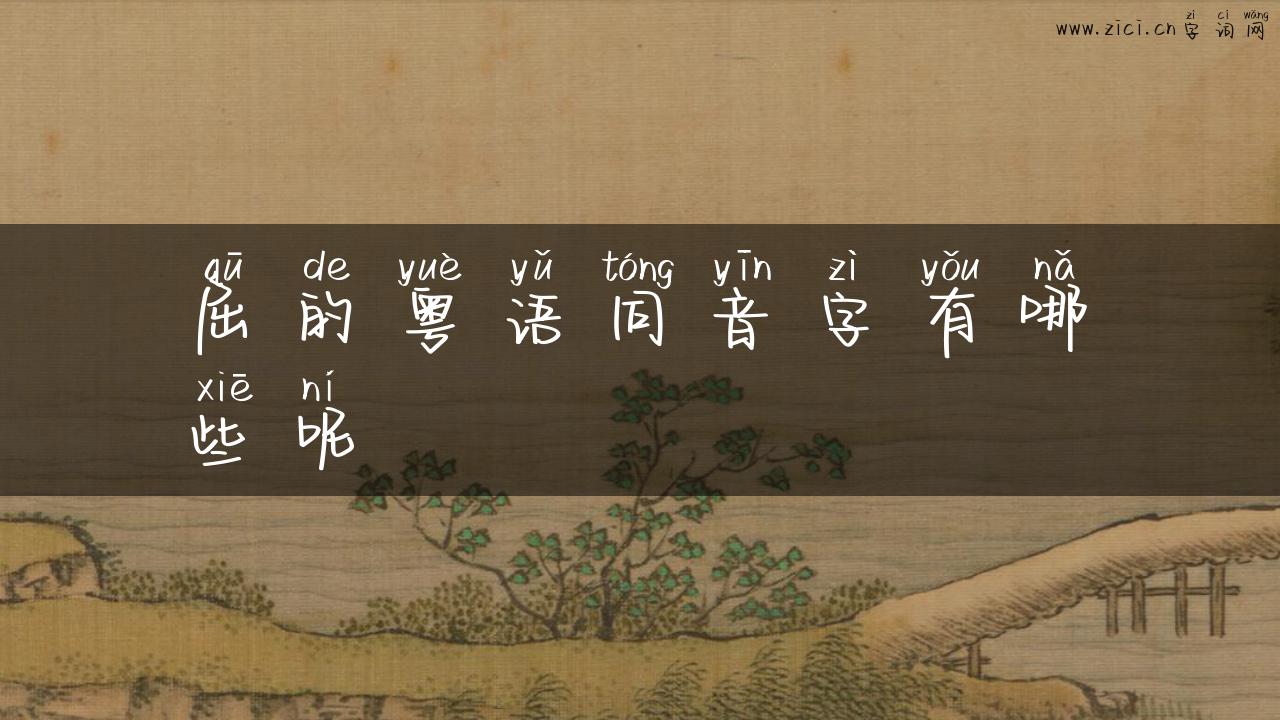 zì cí wǎng
www.zici.cn 字词网
qū de yuè yǔ tóng yīn zì yǒu nǎ
屈的粤语同音字有哪
xiē ní
些呢